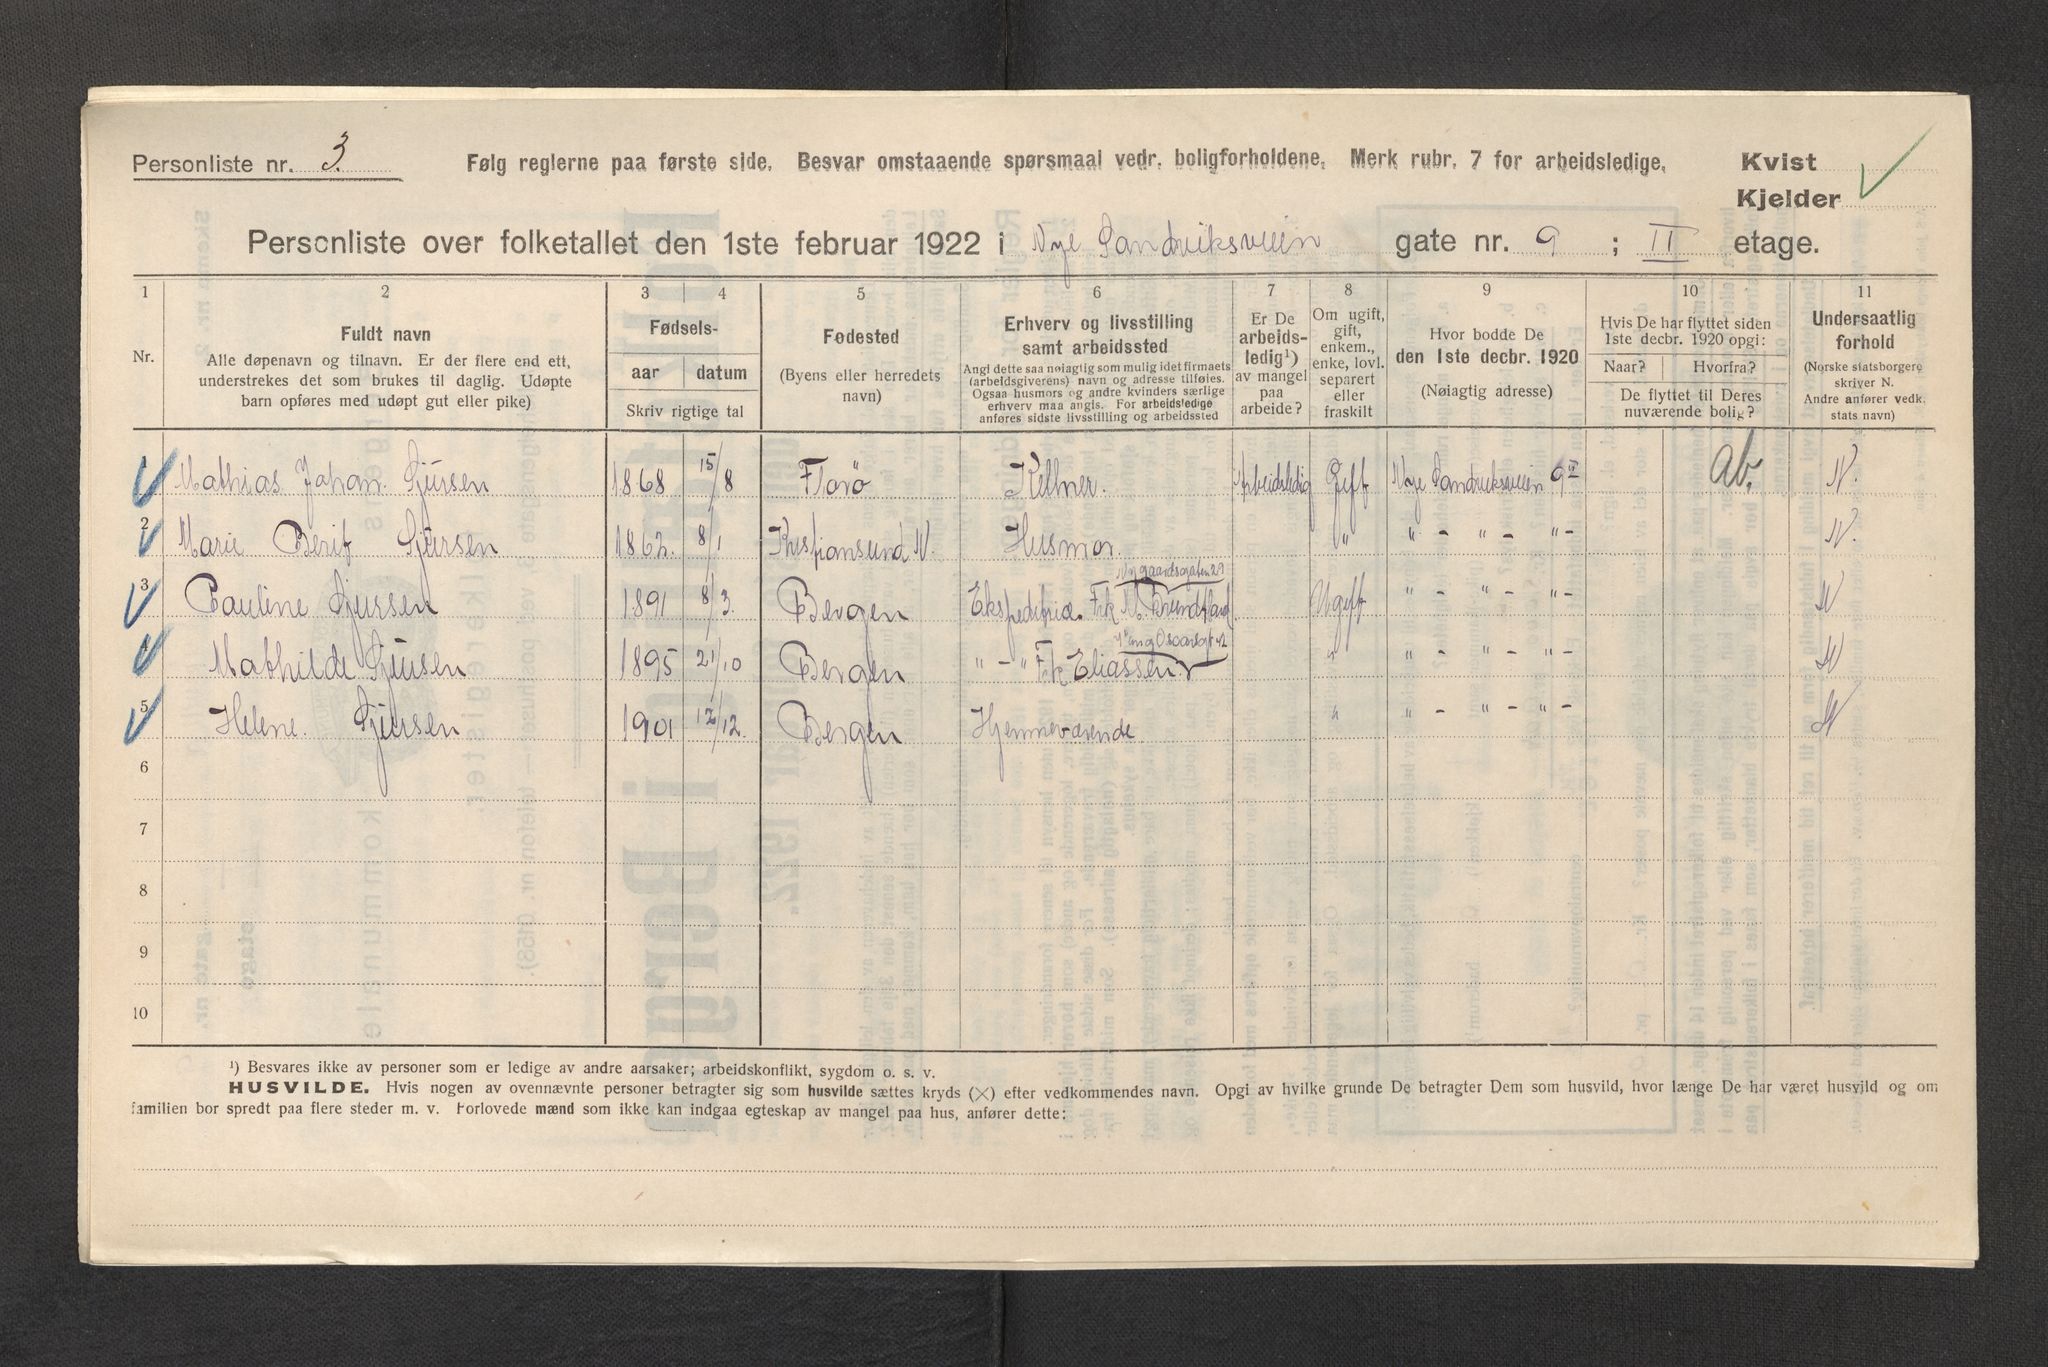 Personliste nr. 3. Følg reglerne paa første side. Besvar omstaaende spørsmaal vedr. boligforholdene. Merk rubr. 7 for arbeidsledige. Kvist
Kjelder
Personliste over folketallet den 1ste februar 1922 i Nye Sandviksveien gate nr. 9 ; II etage.
1 2 3 4 5 6 7 8 9 10 11
Nr.
Fuldt navn
Alle døpenavn og tilnavn. Er der flere end ett,
understrekes det som brukes til daglig. Udøpte
barn opføres med udøpt gut eller pike)
Fødsels-
aar datum
Skriv rigtige tal
Fødested
(Byens eller herredets
navn)
Erhverv og livsstilling
samt arbeidssted
Angi dette saa nøiaglig som mulig idet firmaets
(arbeidsgiverens) navn og adresse tilføies.
Ogsaa husmors og andre kvinders særlige
erhverv maa angis. For arbeidsledige
anføres sidste livsstilling og arbeidssted
Er De
arbeids-
ledig¹)
av mangel
paa
arbeide?
Om ugift,
gift,
enkem.,
enke, lovl.
separert
eller
fraskilt
Hvor bodde De
den 1ste decbr. 1920
(Nøiagtig adresse)
Hvis De har flyttet siden
1ste decbr. 1920 opgi:
Naar? Hvorfra?
De flyttet til Deres
nuværende bolig?
Undersaatlig
forhold
(Norske statsborgere
skriver N.
Andre anfører vedk.
stats navn)
Mathias Johan Sjursen 1868 15/8 Florø Kellner. Arbeidsledig Gift Nye Sandviksveien 9 II ab. N.
2 Marie Berit Sjursen 1862. 8/1 Kristiansund N. Husmor. " " - " - " - N.
Nygaardsgaten 29
3 Pauline Sjursen 1891 8/3. Bergen Ekspeditrice. Frk M. Ugift " - " - " - N
4 Mathilde Sjursen 1895 21/10 Bergen " - " Frk Eliassen " " - " - " - N
5 Helene. Sjursen 1901 12/12. Bergen Hjemmeværende. " " - " - " - N
6
7
8
9
10
¹) Besvares ikke av personer som er ledige av andre aarsaker; arbeidskonflikt, sygdom o. s. v.
HUSVILDE. Hvis nogen av ovennævnte personer betragter sig som husvilde sættes kryds (✕) efter vedkommendes navn. Opgi av hvilke grunde De betragter Dem som husvild, hvor længe De har været husvild og om
familien bor spredt paa flere steder m. v. Forlovede mænd som ikke kan indgaa egteskap av mangel paa hus, anfører dette: